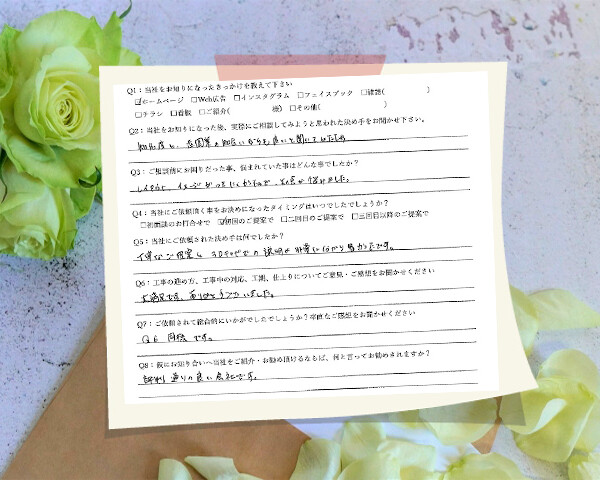 Q1：当社をお知りになったきっかけを教えて下さい
☑ホームページ □Web広告 □インスタグラム □フェイスブック □雑誌( )
□チラシ □看板 □ご紹介( 様) □その他( )
Q2：当社をお知りになった後、実際にご相談してみようと思われた決め手をお聞かせ下さい。
知名度と、
Q3：ご相談前にお困りだった事、悩まれていた事はどんな事でしたか？
Q4：当社にご依頼頂く事をお決めになったタイミングはいつでしたでしょうか？
□初面談のお打合せで ☑初回のご提案で □二回目のご提案で □三回目以降のご提案で
Q5：当社にご依頼された決め手は何でしたか？
丁寧なご提案と 3Dキャドでの 説明が 非常に分かり易かったです。
Q6：工事の進め方、工事中の対応、工期、仕上りについてご意見・ご感想をお聞かせください
大満足です。ありがとうございました。
Q7：ご依頼されて総合的にいかがでしたでしょうか？率直なご感想をお聞かせください
Q6 同様 です。
Q8：仮にお知り合いへ当社をご紹介・お勧め頂けるならば、何と言ってお勧めされますか？
評判 通りの良い会社です。